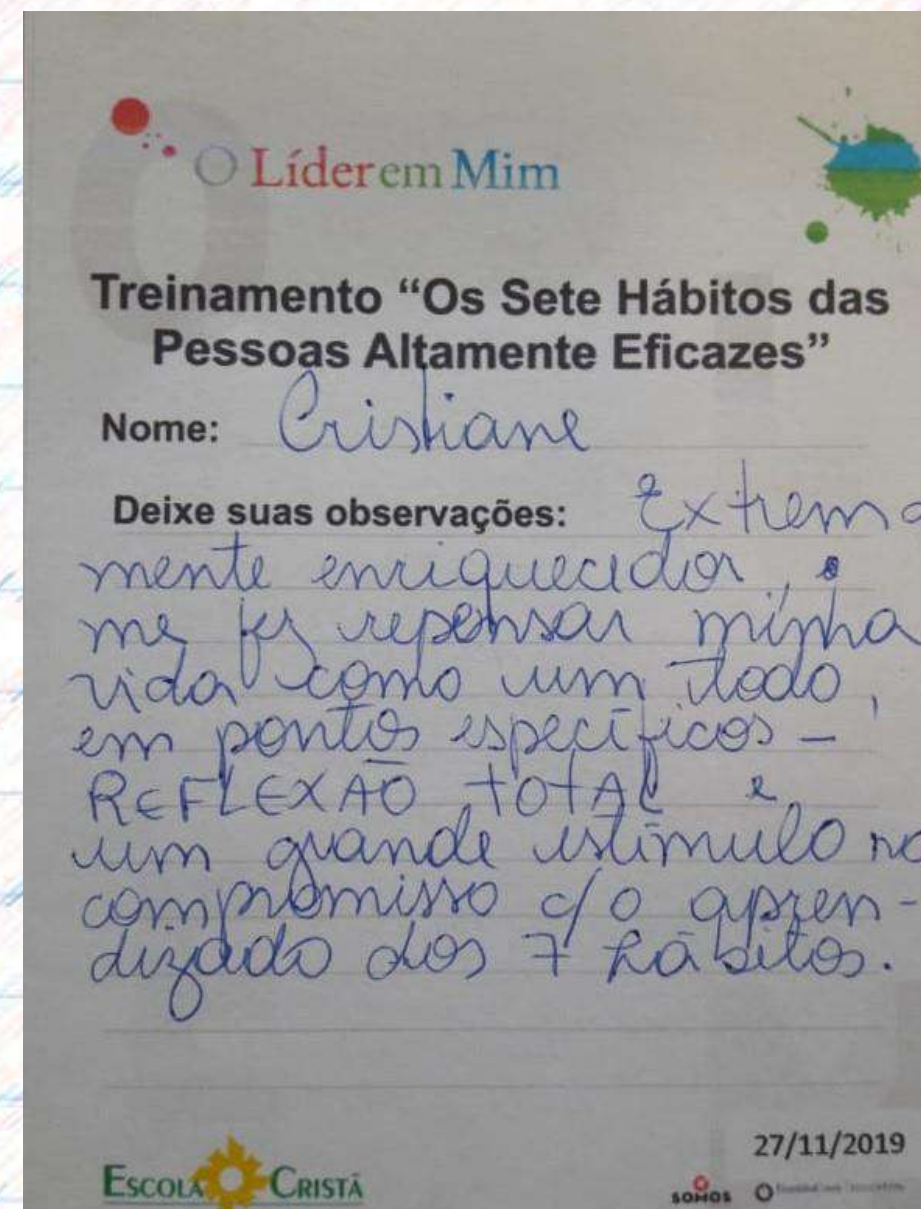 O Líder em Mim
Treinamento “Os Sete Hábitos das
Pessoas Altamente Eficazes”
Nome: Cristiane
Deixe suas observações: Extrema
mente enriquecedor,
me fez repensar minha
vida como um todo,
em pontos específicos –
REFLEXÃO TOTAL e
um grande estímulo no
compromisso c/o apren-
dizado dos 7 hábitos.
27/11/2019
ESCOLA CRISTÃ
SOMOS